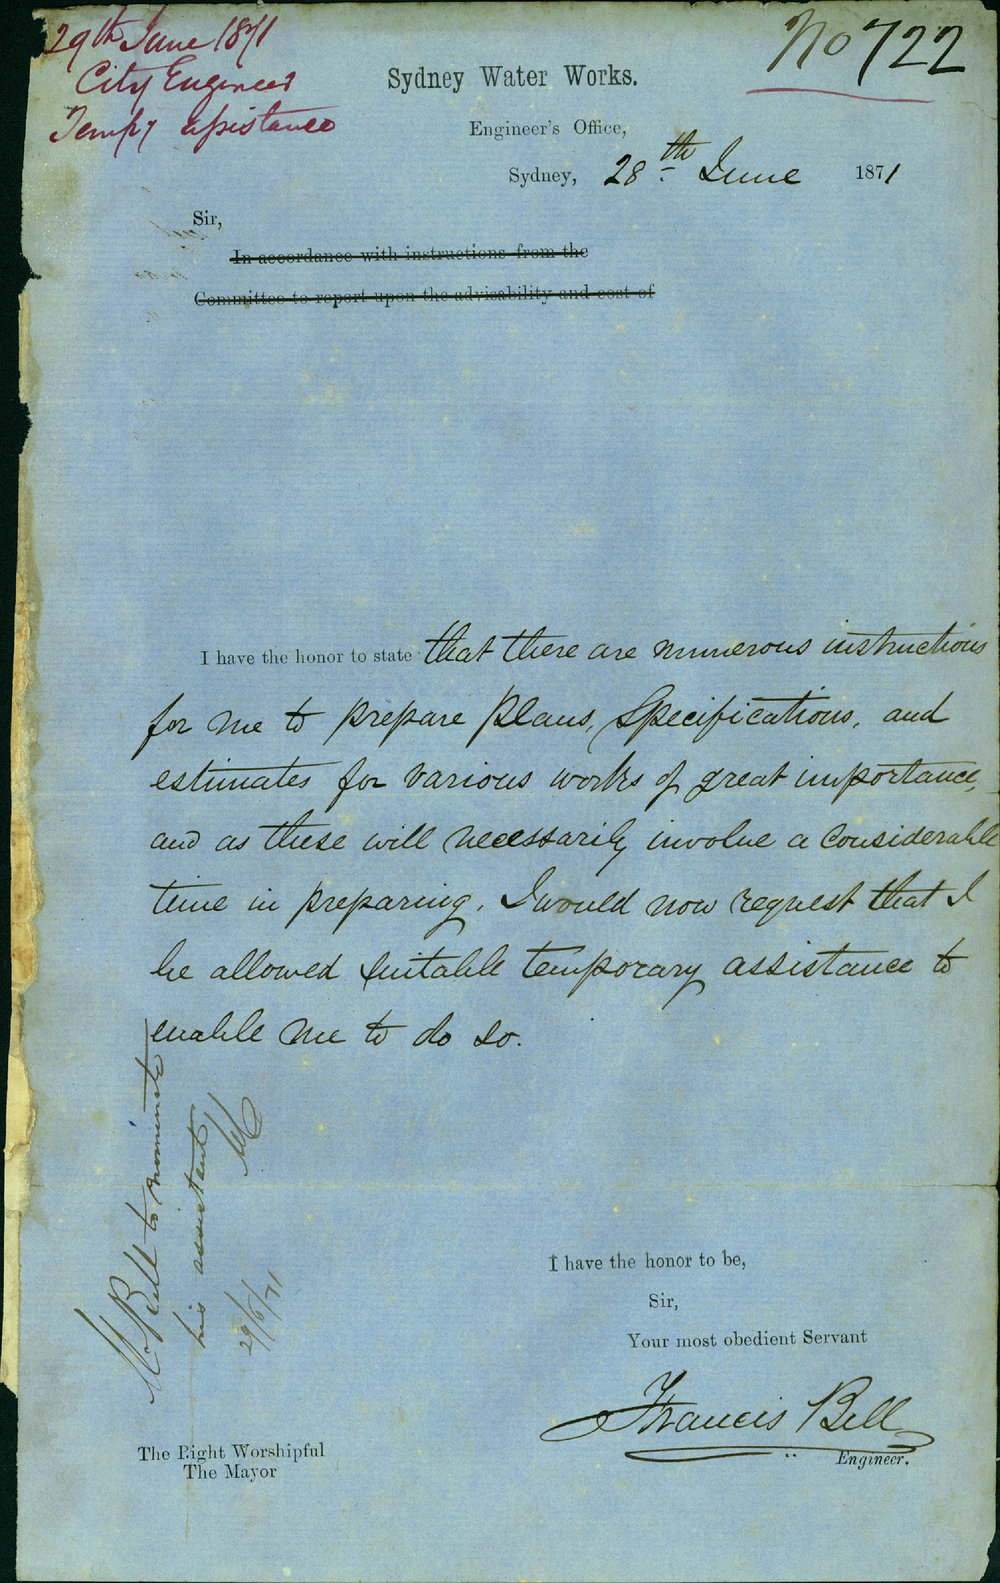 29th June 1871
City Engineer
Tempy assistance
No 722
Sydney Water Works.
Engineer's Office,
Sydney, 28th June 1871
Sir,
In accordance with instructions from the
Committee to report upon the advisability and cost of
I have the honor to state that there are numerous instructions
for me to prepare Plans, Specifications, and
estimates for various works of great importance,
and as these will necessarily involve a considerable
time in preparing, I would now request that I
be allowed suitable temporary assistance to
enable me to do so.
Mr Bell to nominate
his assistant
29/6/71
I have the honor to be,
Sir,
Your most obedient Servant
Francis Bell
Engineer.
The Right Worshipful
The Mayor